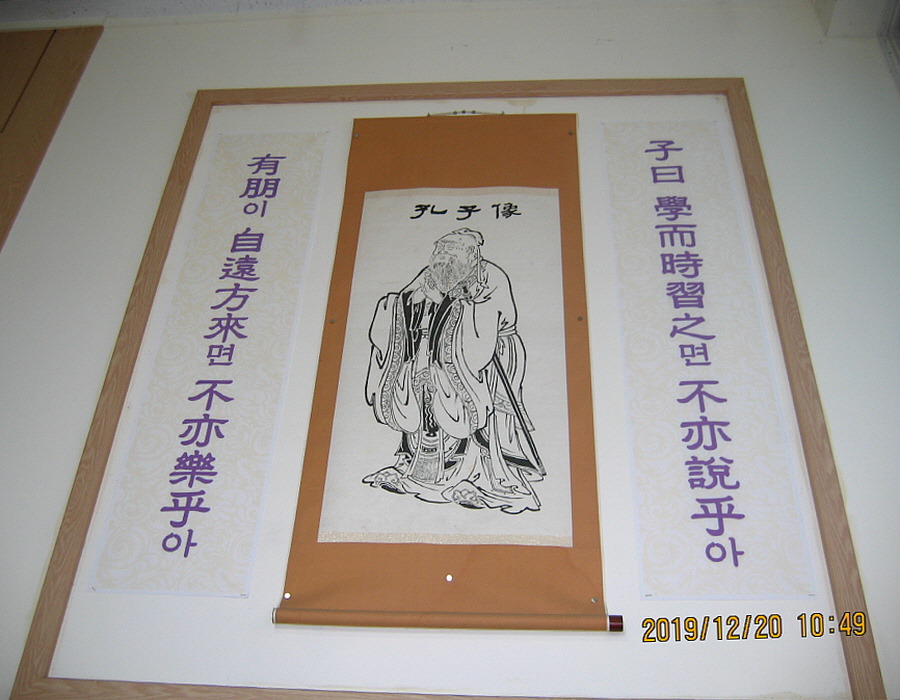 孔子像
子曰 學而時習之면 不亦說乎아
有朋이 自遠方來면 不亦樂乎아
2019/12/20 10:49